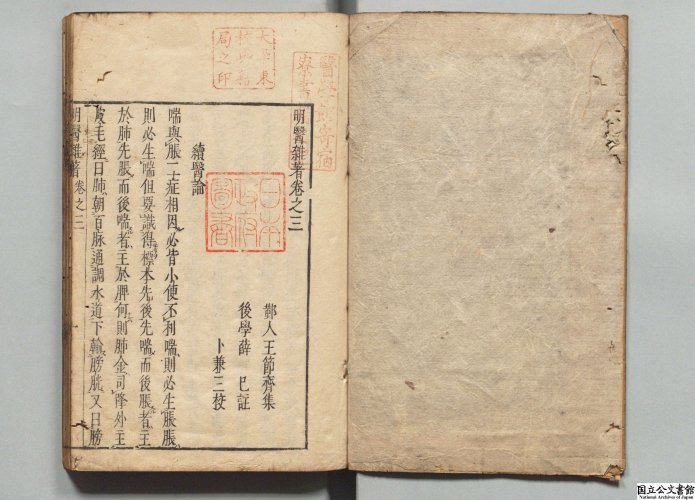 明醫雜著卷之三
鄞人王節齊集
後學薛　巳註
卜兼三校
續醫論
喘與脹二症相因必皆小便不利喘則必生脹脹
則必生喘但要識得標本先後先喘而後脹者主
於肺先脹而後喘者主於脾何則肺金司降外主
皮毛經曰肺朝百脉通調水道下輸膀胱又曰膀
明醫雜著卷之三
日本
政府
圖書
國立公文書館
National Archives of Japan